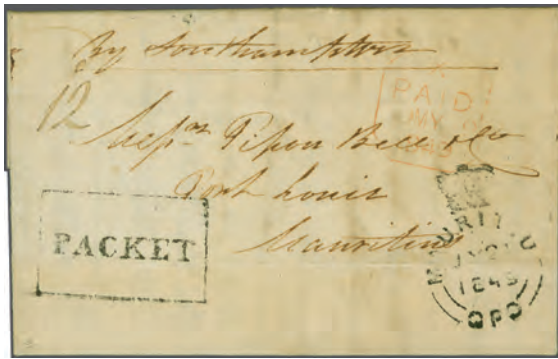 By Southampton
PAID
MY
12
Mess.rs Pipon Bell & Co
Port Louis
Mauritius
PACKET
MAURITIUS
GPO